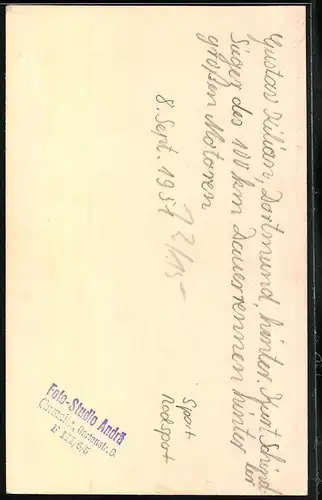 Gustav Kilian, Dortmund, hinter Kurt Schindler
Sieger des 100 km Dauerrennen hinter
großen Motoren
8. Sept. 1951
Sport
Radsport
Foto-Studio Andrä
Chemnitz,